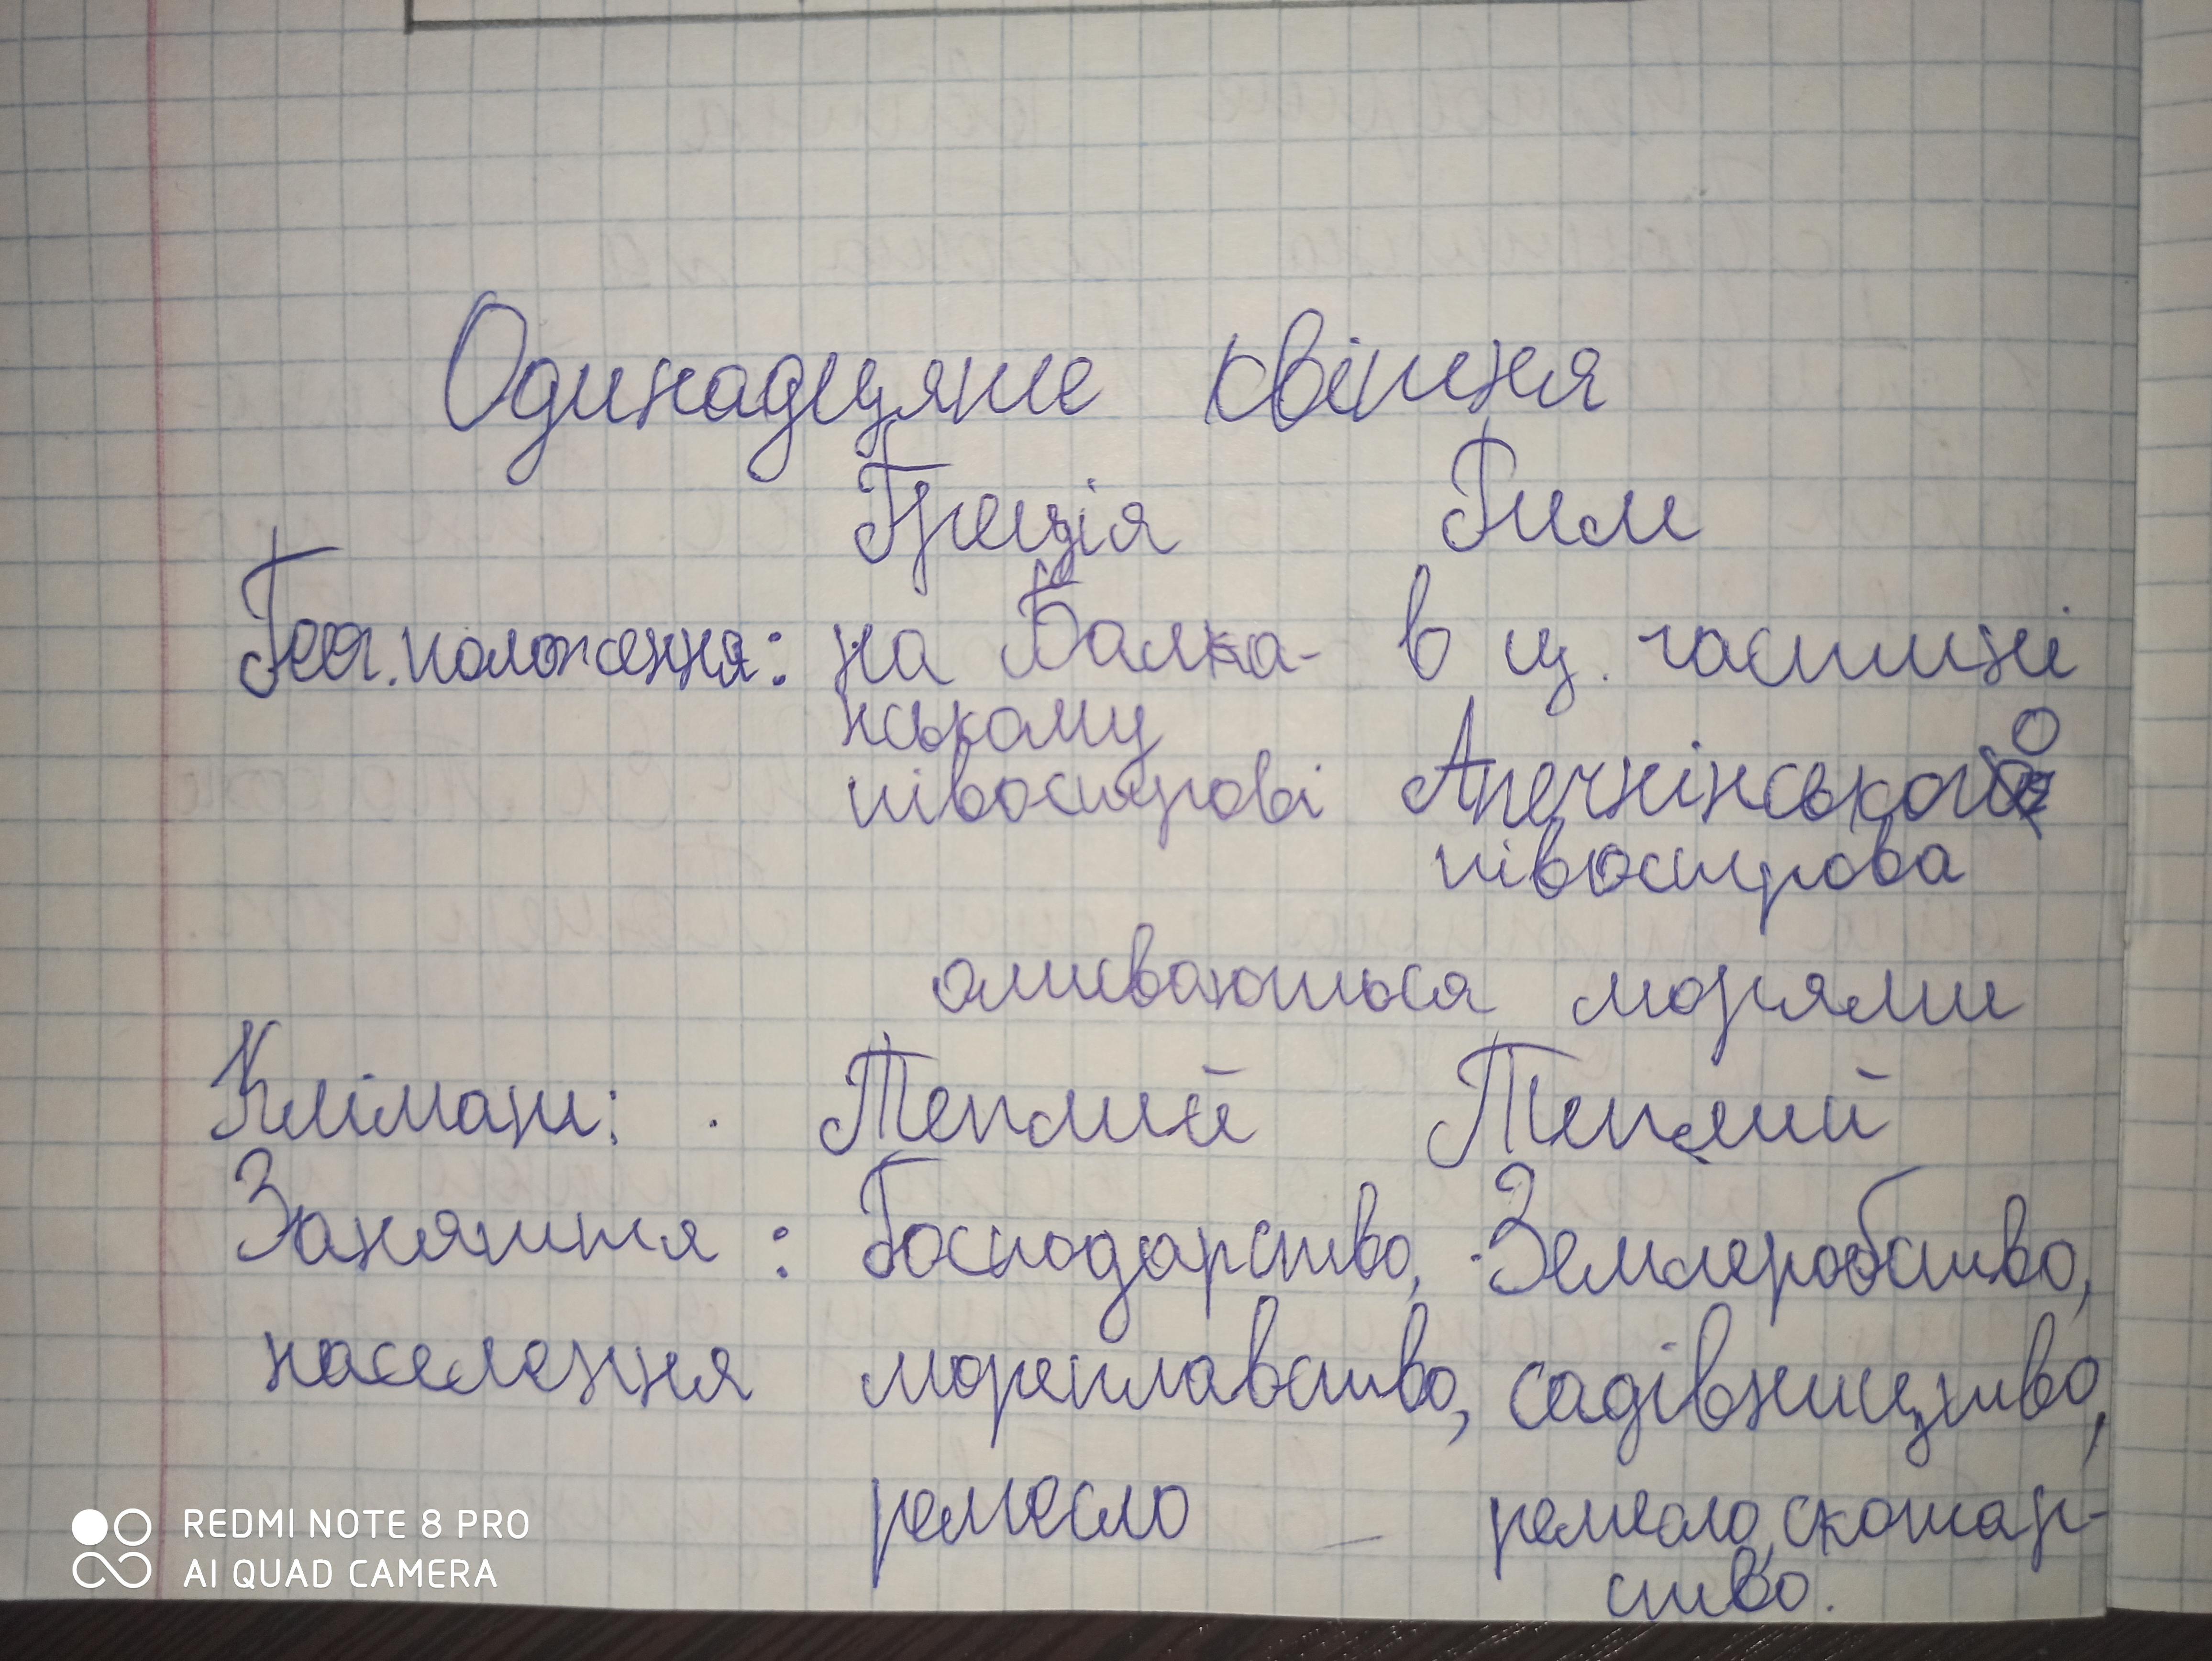 Одинадцяте квітня
Греція Рим
Геогр.положення: на Балка- в ц. частині
нському
півострові Апеннінського
півострова
омиваються морями
Клімат: Теплий Теплий
Заняття : Господарство, Землеробство,
населення мореплавство, садівництво,
ремесло – ремесло, скотар-
ство.
REDMI NOTE 8 PRO
AI QUAD CAMERA